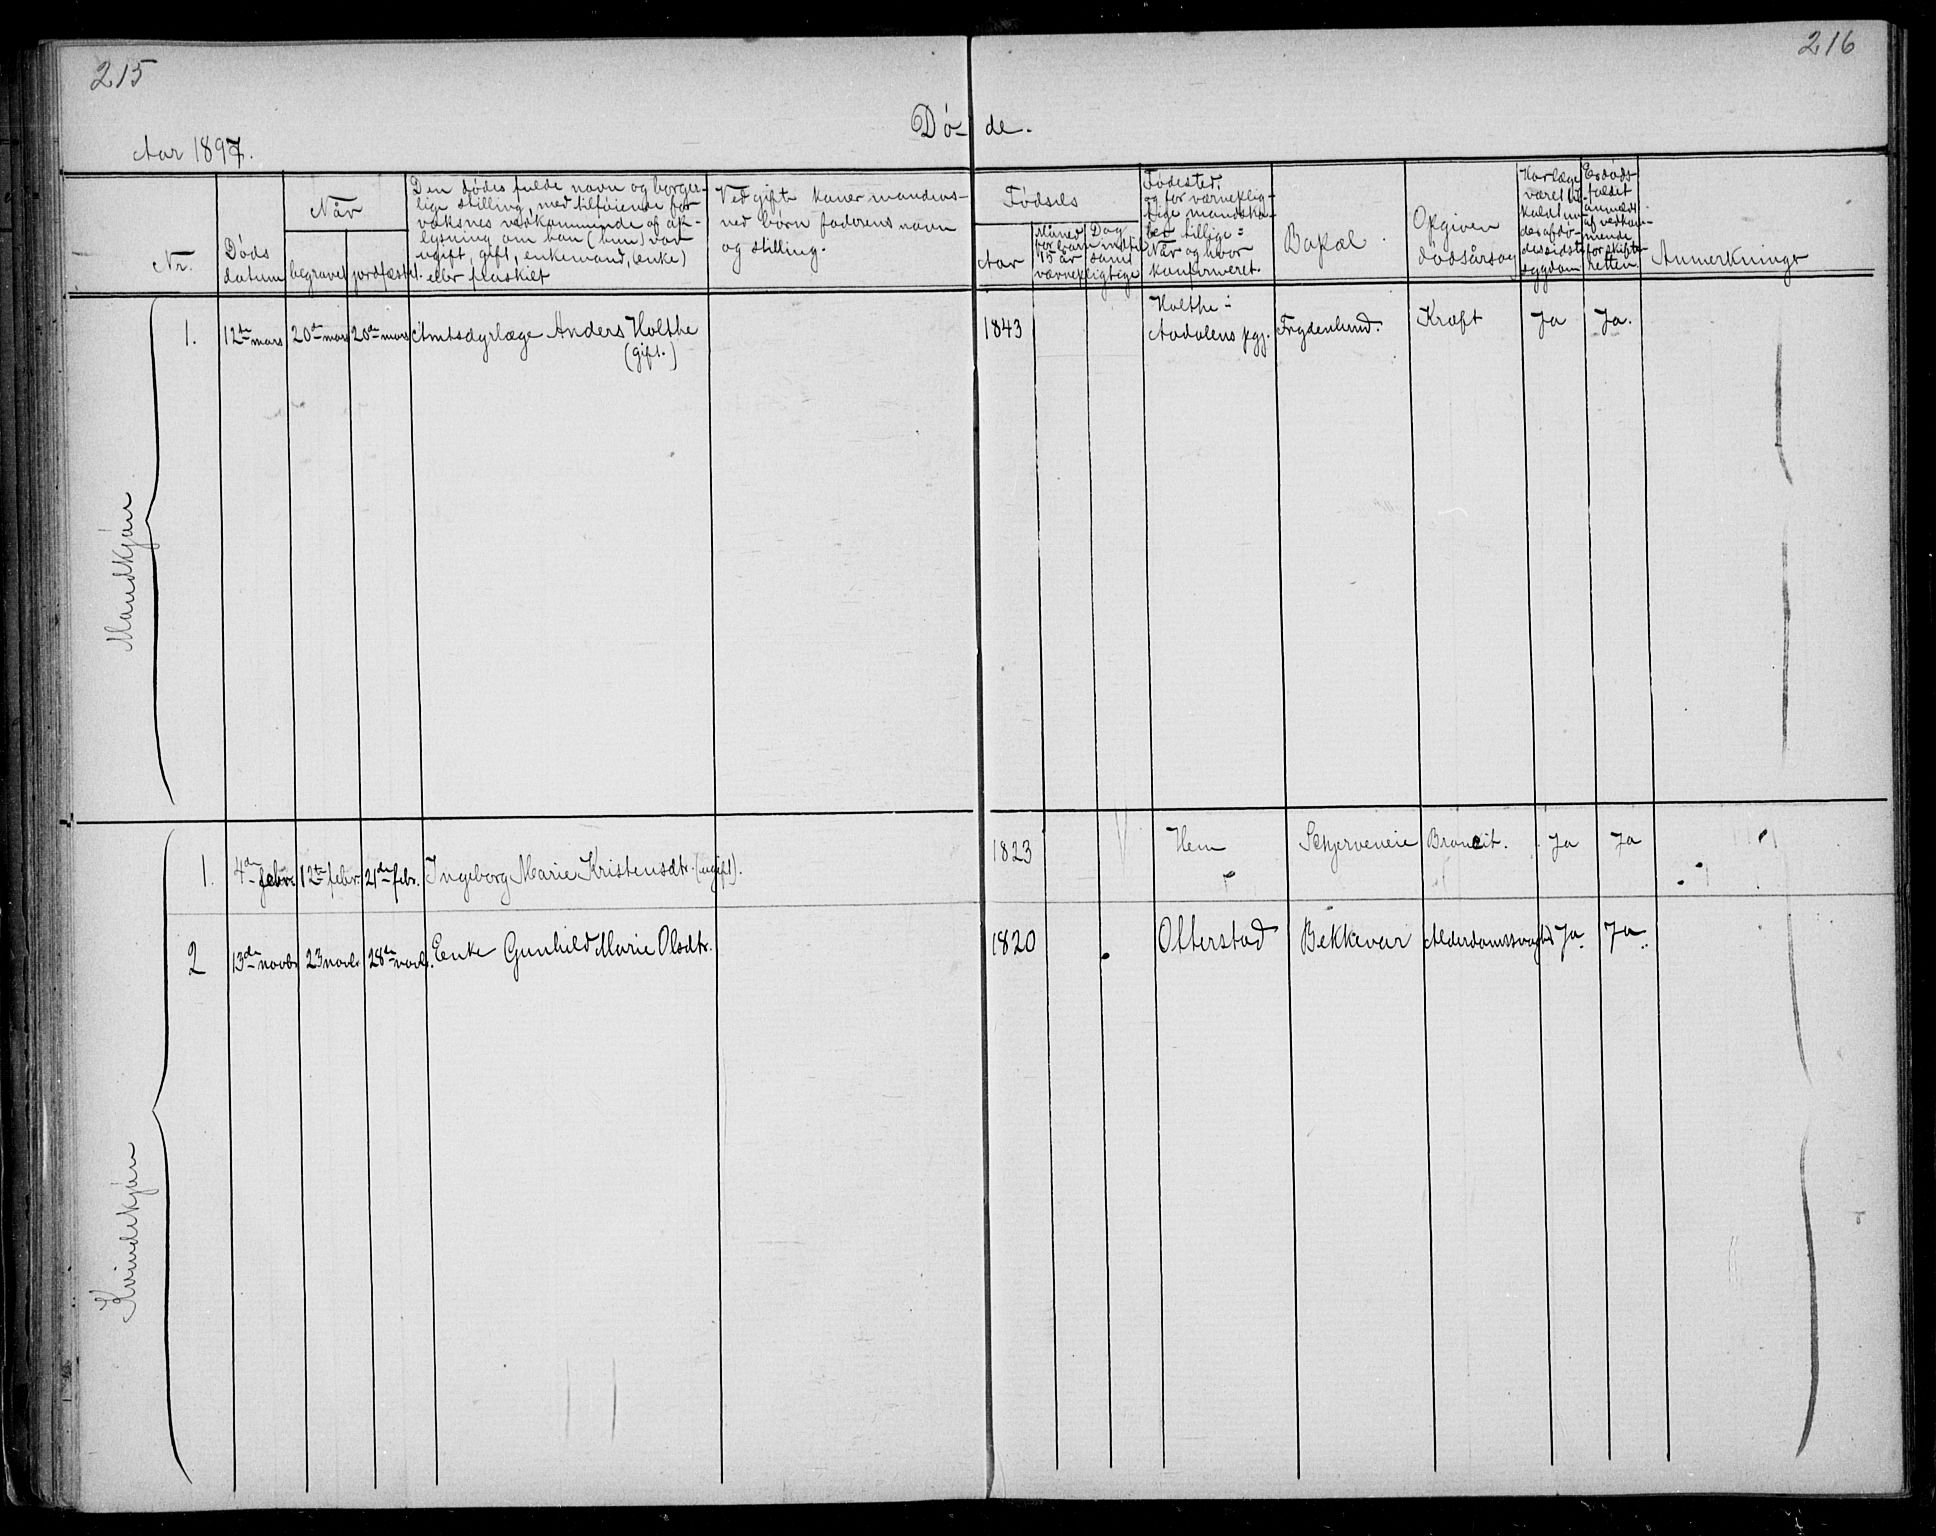 215
216
Dø- de.
Aar 1897.
Nr.
Døds
datum
Når
begravet
jordfæstet.
Den dødes fulde navn og borger-
lige stilling, med tilføiende for
voksnes vedkommende af op-
lysning om han (hun) var
ugift, gift, enkemand, (enke)
eller fraskilt
Ved gifte koner mandens-
ved børn faderens navn
og stilling.
Fødsels
Aar
Måned
for barn indtil
15 år samt
værnepligtige
Dag
Fødested,
og for værneplig-
tige mandska-
ber tillige:
Når og hvor
konfirmeret.
Bopæl.
Opgiven
dødsårsag
Har læge
været til-
kaldt un-
der afdø-
des sidste
sygdom
Er døds-
faldet
anmeldt
af vedkom-
mende
for skifte-
retten
Anmerkninger
Mandkjøn
1. 12te mars 20de mars 20de mars Amtsdyrlæge Anders Holthe 1843 Holthe i Frydenlund. Kræft Ja Ja.
(gift.) Aadalens pgj.
Kvindekjøn
1. 4de febr. 12te febr. 21de febr. Ingeborg Marie Kristensdtr. (ugift). 1823 Hem Skjerveneie Ja Ja
2 13de novbr 23 novbr 28de novbr. Enke Gunhild Marie Olsdtr. 1820 Olterstad Bekkevar Alderdomssvaghed Ja. Ja.